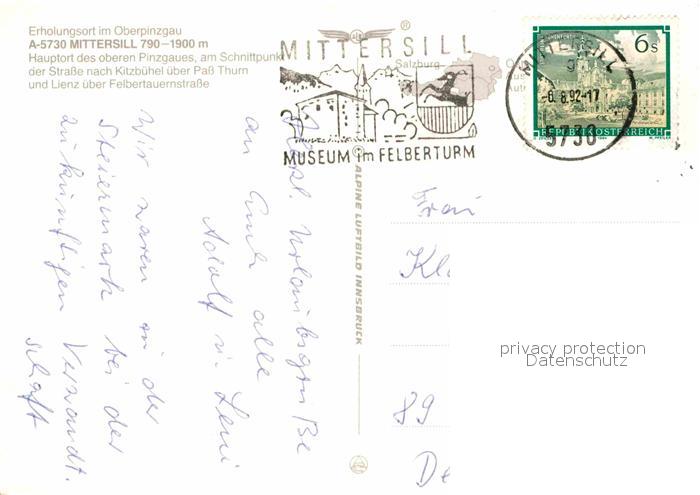 Erholungsort im Oberpinzgau
A-5730 MITTERSILL 790–1900 m
Hauptort des oberen Pinzgaues, am Schnittpunkt
der Straße nach Kitzbühel über Paß Thurn
und Lienz über Felbertauernstraße
®
MITTERSILL
Salzburg
MUSEUM im FELBERTURM
MITTERSILL
-6.8.92-17
5730
6s
REPUBLIK ÖSTERREICH
Herzl. Urlaubsgrüße
an Euch alle
Adolf u. Leni
Wir waren in der
Steiermark bei der
zukünftigen Verwandt.
schaft
ALPINE LUFTBILD INNSBRUCK
Frau
89
privacy protection
Datenschutz